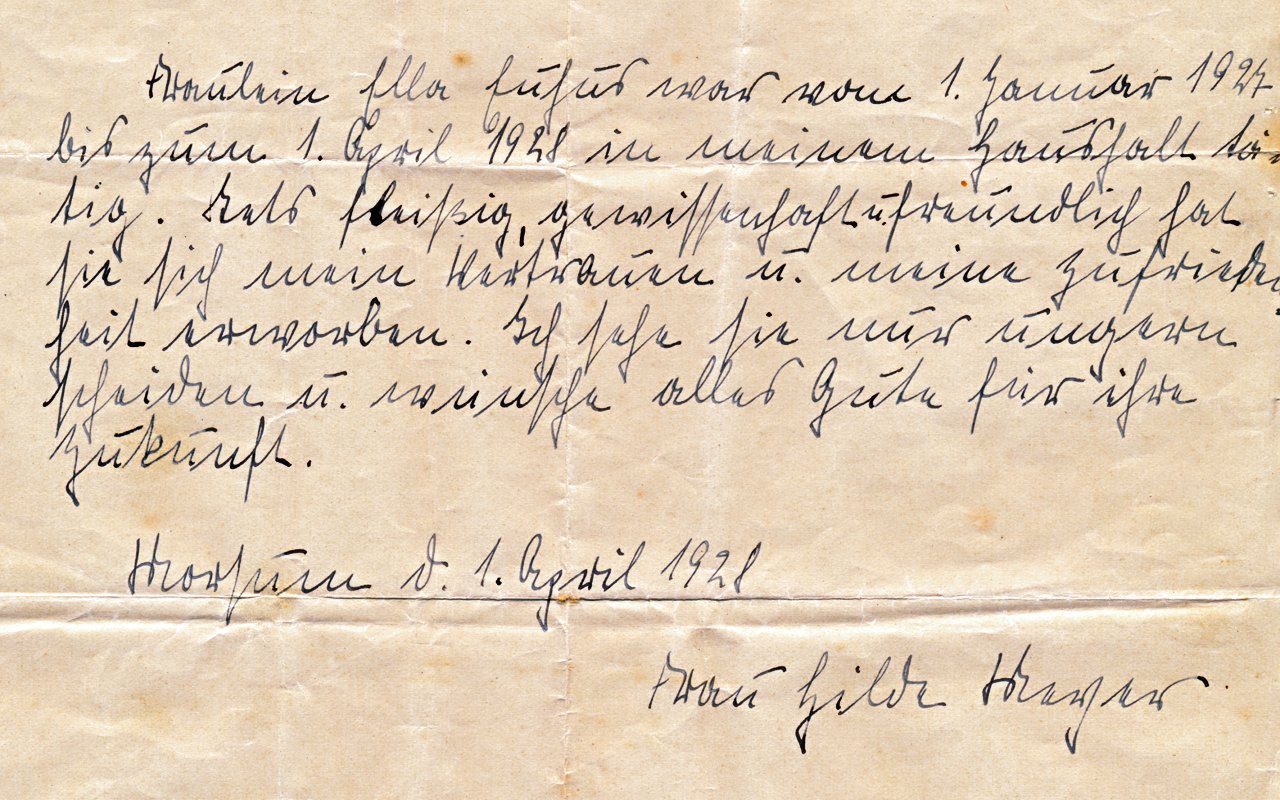 Fräulein Ella war vom 1. Januar 1927
bis zum 1. April 1928 in meinem Haushalt tä-
tig. Stets fleißig, gewissenhaft u. freundlich hat
sie sich mein Vertrauen u. meine Zufrieden
heit erworben. Ich sehe sie nur ungern
scheiden u. wünsche alles Gute für ihre
Zukunft.
Morsum d. 1. April 1928
Frau Hilde Meyer